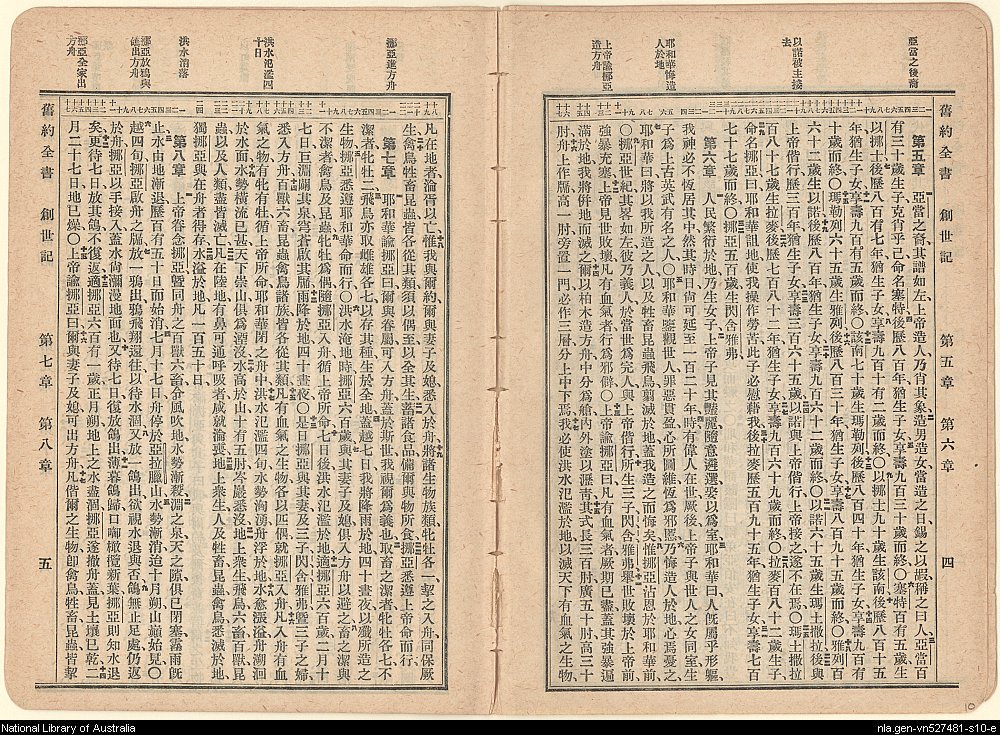 亞當之後裔
以諾被主接
去
耶和華悔造
人於地
上帝諭挪亞
造方舟
舊約全書 創世記 第五章 第六章 四
第五章 亞當之裔其譜如左上帝造人乃肖其象造男造女當造之日錫之以嘏稱之曰人亞當百
有三十歲生子克肖乎己命名塞特後歷八百年猶生子女享壽九百三十歲而終〇塞特百有五歲生
以挪士後歷八百有七年猶生子女享壽九百十有二歲而終〇以挪士九十歲生該南後歷八百十五
年猶生子女享壽九百有五歲而終〇該南七十歲生瑪勒列後歷八百四十年猶生子女享壽九百有
十歲而終〇瑪勒列六十五歲生雅列後歷八百三十年猶生子女享壽八百九十五歲而終〇雅列百
六十二歲生以諾後歷八百年猶生子女享壽九百六十二歲而終〇以諾六十五歲生瑪土撒拉後與
上帝偕行歷三百年猶生子女享壽三百六十五歲以諾與上帝偕行上帝接之遂不在焉〇瑪土撒拉
百八十七歲生拉麥後歷七百八十二年猶生子女享壽九百六十九歲而終〇拉麥百八十二歲生子
命名挪亞曰耶和華詛地使我操作勞苦此子必慰藉我後拉麥歷五百九十五年猶生子女享壽七百
七十七歲而終〇挪亞五百歲生閃含雅弗
第六章 人民繁衍於地乃生女子上帝子見其豔麗隨意遴選娶以爲室耶和華曰人旣屬乎形軀
我神必不恆居其中然其時日尙可延至一百二十年時有偉人在世厥後上帝子與人之女同室生
子爲上古英武有名之人〇耶和華鑒觀世人罪惡貫盈心所圖維恆爲邪慝乃悔造人於地心爲憂之
耶和華曰將以我所造之人以及牲畜昆蟲飛鳥翦滅於地蓋我造之而悔矣惟挪亞沾恩於耶和華前
〇挪亞世紀其畧如左彼乃義人於當世爲完人與上帝偕行所生三子閃含雅弗舉世敗壞於上帝前
強暴充塞上帝見世敗壞凡有血氣者行爲邪僻〇上帝諭挪亞曰凡有血氣者厥期已盡蓋其強暴遍
於地我將併地而滅之爾可以柏木造方舟中分爲艙內外塗以瀝青其式長三百肘廣五十肘高三十
肘舟上作牖高一肘旁置一門必作三層分上中下焉我必使洪水氾濫於地以滅天下有血氣之生物
挪亞進方舟
洪水氾濫四
十日
洪水消落
挪亞放鴉與
鴿出方舟
挪亞全家出
方舟
凡在地者淪胥以亡惟我與爾約爾與妻子及媳悉入於舟將諸生物族類牝牡各一挈之入舟同保厥
生禽鳥牲畜昆蟲皆各從其類須以偶至以全其生蓄諸食品備爾與物所食挪亞悉遵上帝命而行
第七章 耶和華諭挪亞曰爾與眷屬可入方舟蓋於斯世我視爾爲義也取畜之潔者牝牡各七不
潔者牝牡二飛鳥亦取雌雄各七以存其種生於全地蓋越七日我將降雨於地四十晝夜以殲所造之
生物挪亞悉遵耶和華命而行〇洪水淹地時挪亞六百歲與其妻子及媳俱入方舟以避之畜之潔與
不潔者禽鳥及昆蟲牝牡爲偶隨挪亞入舟循上帝所命七日後洪水氾濫於地適挪亞六百歲二月十
七日巨淵闢其泉穹蒼啟其牖雨降於地四十晝夜〇是日挪亞與其妻及三子閃含雅弗曁三子之婦
悉入方舟百獸六畜昆蟲禽鳥諸族皆各從其類凡有血氣之生物各以匹偶就挪亞入舟凡入舟有血
氣之物有牝有牡循上帝所命耶和華閉之舟中洪水氾濫四旬水勢洶湧舟浮於地水愈漲溢舟泂洄
於水面水勢橫流已甚天下崇山俱爲湮沒水高於山十有五肘岑巖悉沒地上衆生飛鳥六畜百獸昆
蟲以及人類盡皆滅亡凡在陸地有鼻可通呼吸者咸就淪喪地上衆生人及牲畜昆蟲禽鳥悉滅於地
獨挪亞與在舟者得存水溢於地凡一百五十日
第八章 上帝眷念挪亞曁同舟之百獸六畜命風吹地水勢漸殺淵之泉天之隙俱已閉塞霪雨旣
止水由地漸退歷百有五十日而始消七月十七日舟停於亞拉臘山水勢漸消迨十月朔山巔始見〇
越四旬挪亞啟舟之牖放一鴉出鴉飛翔還往以待水涸又放一鴿出欲視水退與否鴿無止足處仍返
於舟挪亞以手接入蓋水尙瀰漫地面也又待七日復放鴿出薄暮鴿歸口啣橄欖新葉挪亞則知水退
矣更待七日放其鴿不復返適挪亞六百有一歲正月朔地上之水盡涸挪亞遂撤舟蓋見土壤已乾二
月二十七日地已燥〇上帝諭挪亞曰爾與妻子及媳可出方舟凡偕爾之生物卽禽鳥牲畜昆蟲皆挈
舊約全書 創世記 第七章 第八章 五
National Library of Australia
nla.gen-vn527481-s10-e